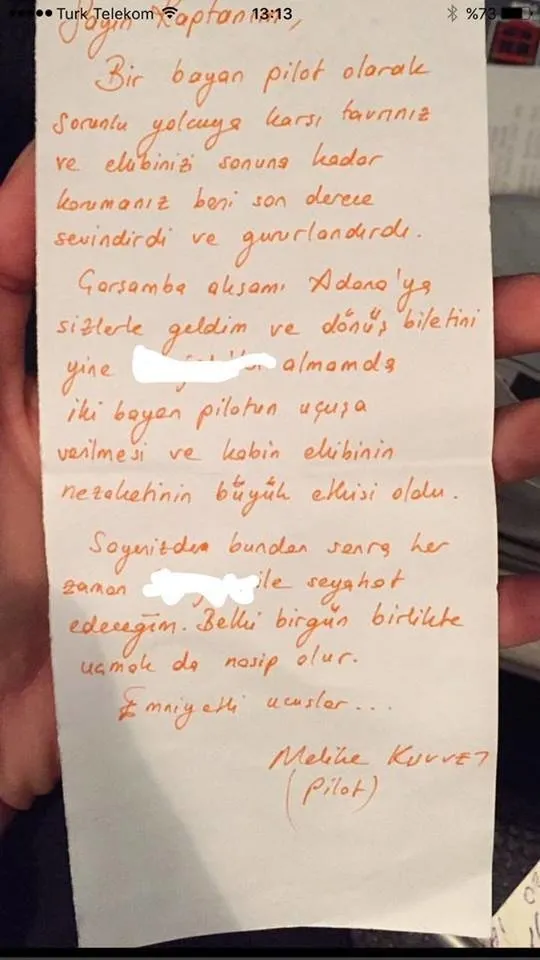 Türk Telekom 13:13 %73
Sayın Kaptanım,
Bir bayan pilot olarak
sorunlu yolcuya karşı tavrınız
ve ekibinizi sonuna kadar
korumanız beni son derece
sevindirdi ve gururlandırdı.
Çarşamba akşamı Adana'ya
sizlerle geldim ve dönüş biletini
yine almamda
iki bayan pilotun uçuşa
verilmesi ve kabin ekibinin
nezaketinin büyük etkisi oldu.
Sayenizde bundan sonra her
zaman ile seyahat
edeceğim. Belki birgün birlikte
uçmak da nasip olur.
Emniyetli uçuşlar...
Melike Kuvvet
(Pilot)